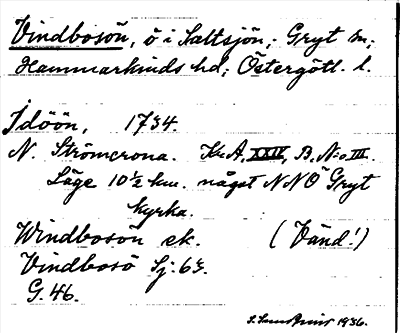 Vindbosön, ö i Saltsjön; Gryt sn;
Hammarkinds hd; Östergötl. l.
Idöön, 1734.
N. Strömcrona. Kr. A. XXIV, B. No III.
Läge 10½ km. något NNO Gryt
kyrka.
Windbosön ek. (Vänd!)
Vindbosö Sj. 63.
G. 46.
1936.